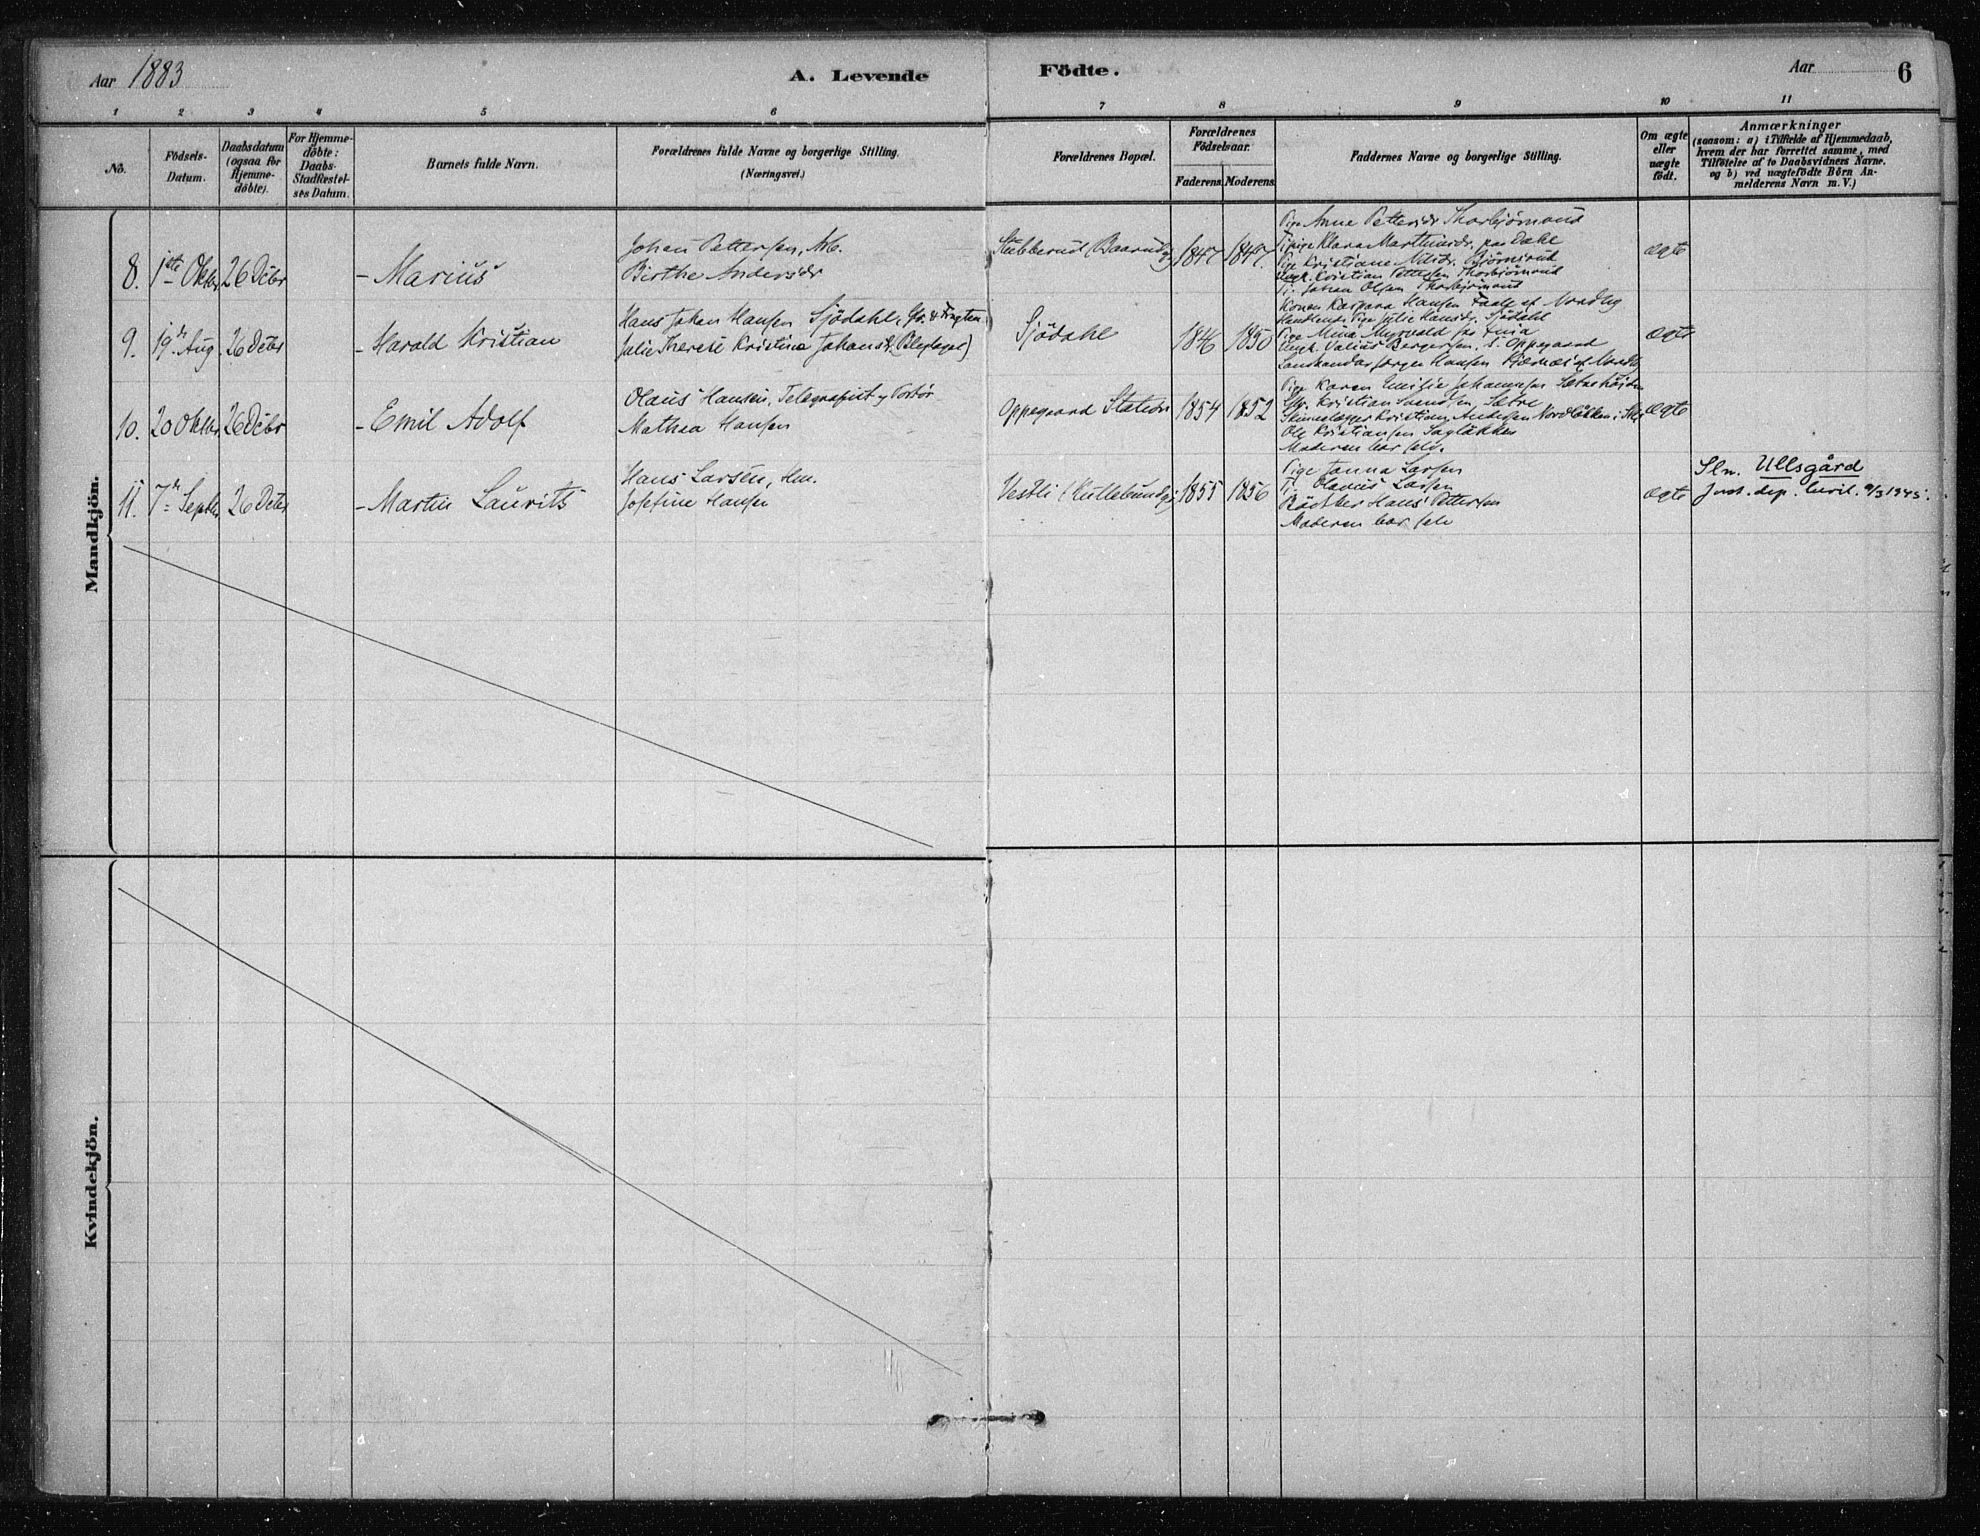 Aar 1883
A. Levende
Födte.
Aar
6
1 2 3 4 5 6 7 8 9 10 11
No.
Födsels-
Datum.
Daabsdatum
(ogsaa for
Hjemme-
döbte).
For Hjemme-
döbte:
Daabs-
Stadfæstel-
ses Datum.
Barnets fulde Navn.
Forældrenes fulde Navne og borgerlige Stilling.
(Næringsvei.)
Forældrenes Bopæl.
Forældrenes
Födselsaar.
Faderens. Moderens.
Faddernes Navne og borgerlige Stilling.
Om ægte
eller
uægte
födt.
Anmærkninger
(saasom: a) i Tilfælde af Hjemmedaab,
hvem der har forrettet samme, med
Tilföielse af to Daabsvidners Navne.
og b) ved uægtefödte Börn An-
melderens Navn m. V.)
Mandkjön.
8. 1ste Oktbr 26 Dcbr - Marius
Johan Pettersen, Arb.
Birthe Andersdr
Stubberud (Baarud 1847 1847.
Pige Anne Pettersdr Thorbjørnrud
Klara Martinusdr. paa Dahl
Pige Kristiane Nilsdr. Bjørnsrud
Ungk. Kristian Pettersen Thorbjørnrud
Johan Olsen Thorbjørnrud
ægte
9. 19de Aug. 26 Dcbr - Harald Kristian
Hans Johan Hansen Sjödahl,
Julie Therese Kristine Johansdr.
Sjödahl 1846 1850
Konen Kaspara Hansen
Handlende Pige Julie Hansdr. Sjödahl
Pige Mina Myrvold
Ungk. Valius Bergersen, S. Oppegaard
Jørgen Hansen
ægte
10. 20 Oktbr 26 Dcbr - Emil Adolf
Olaus Hansen, Telegrafist og
Mathea Hansen
Oppegaard Station 1854 1852
Pige Karen Emilie Johannesen
Kristian Svendsen, Sætre
Kristian Andersen Nordløkken i Ski
Ole Kristiansen Sagløkken
Moderen bar selv.
ægte
11. 7de Septbr 26 Dcbr - Martin Laurits
Hans Larsen, Hm.
Josefine Hansen
Vestli (Kullebund 1855 1856
Pige Janna Larsen
Olavus Larsen
Rødtker Hans Pettersen
Moderen bar selv
ægte
Sln. Ullsgård
Just. dep. bevil. 9/3 1945.
Kvindekjön.